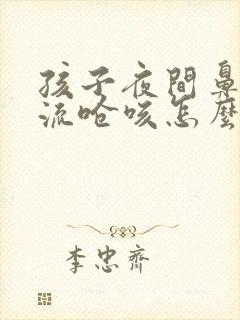 孩子夜間鼻
流嗆咳怎麼
李忠齊